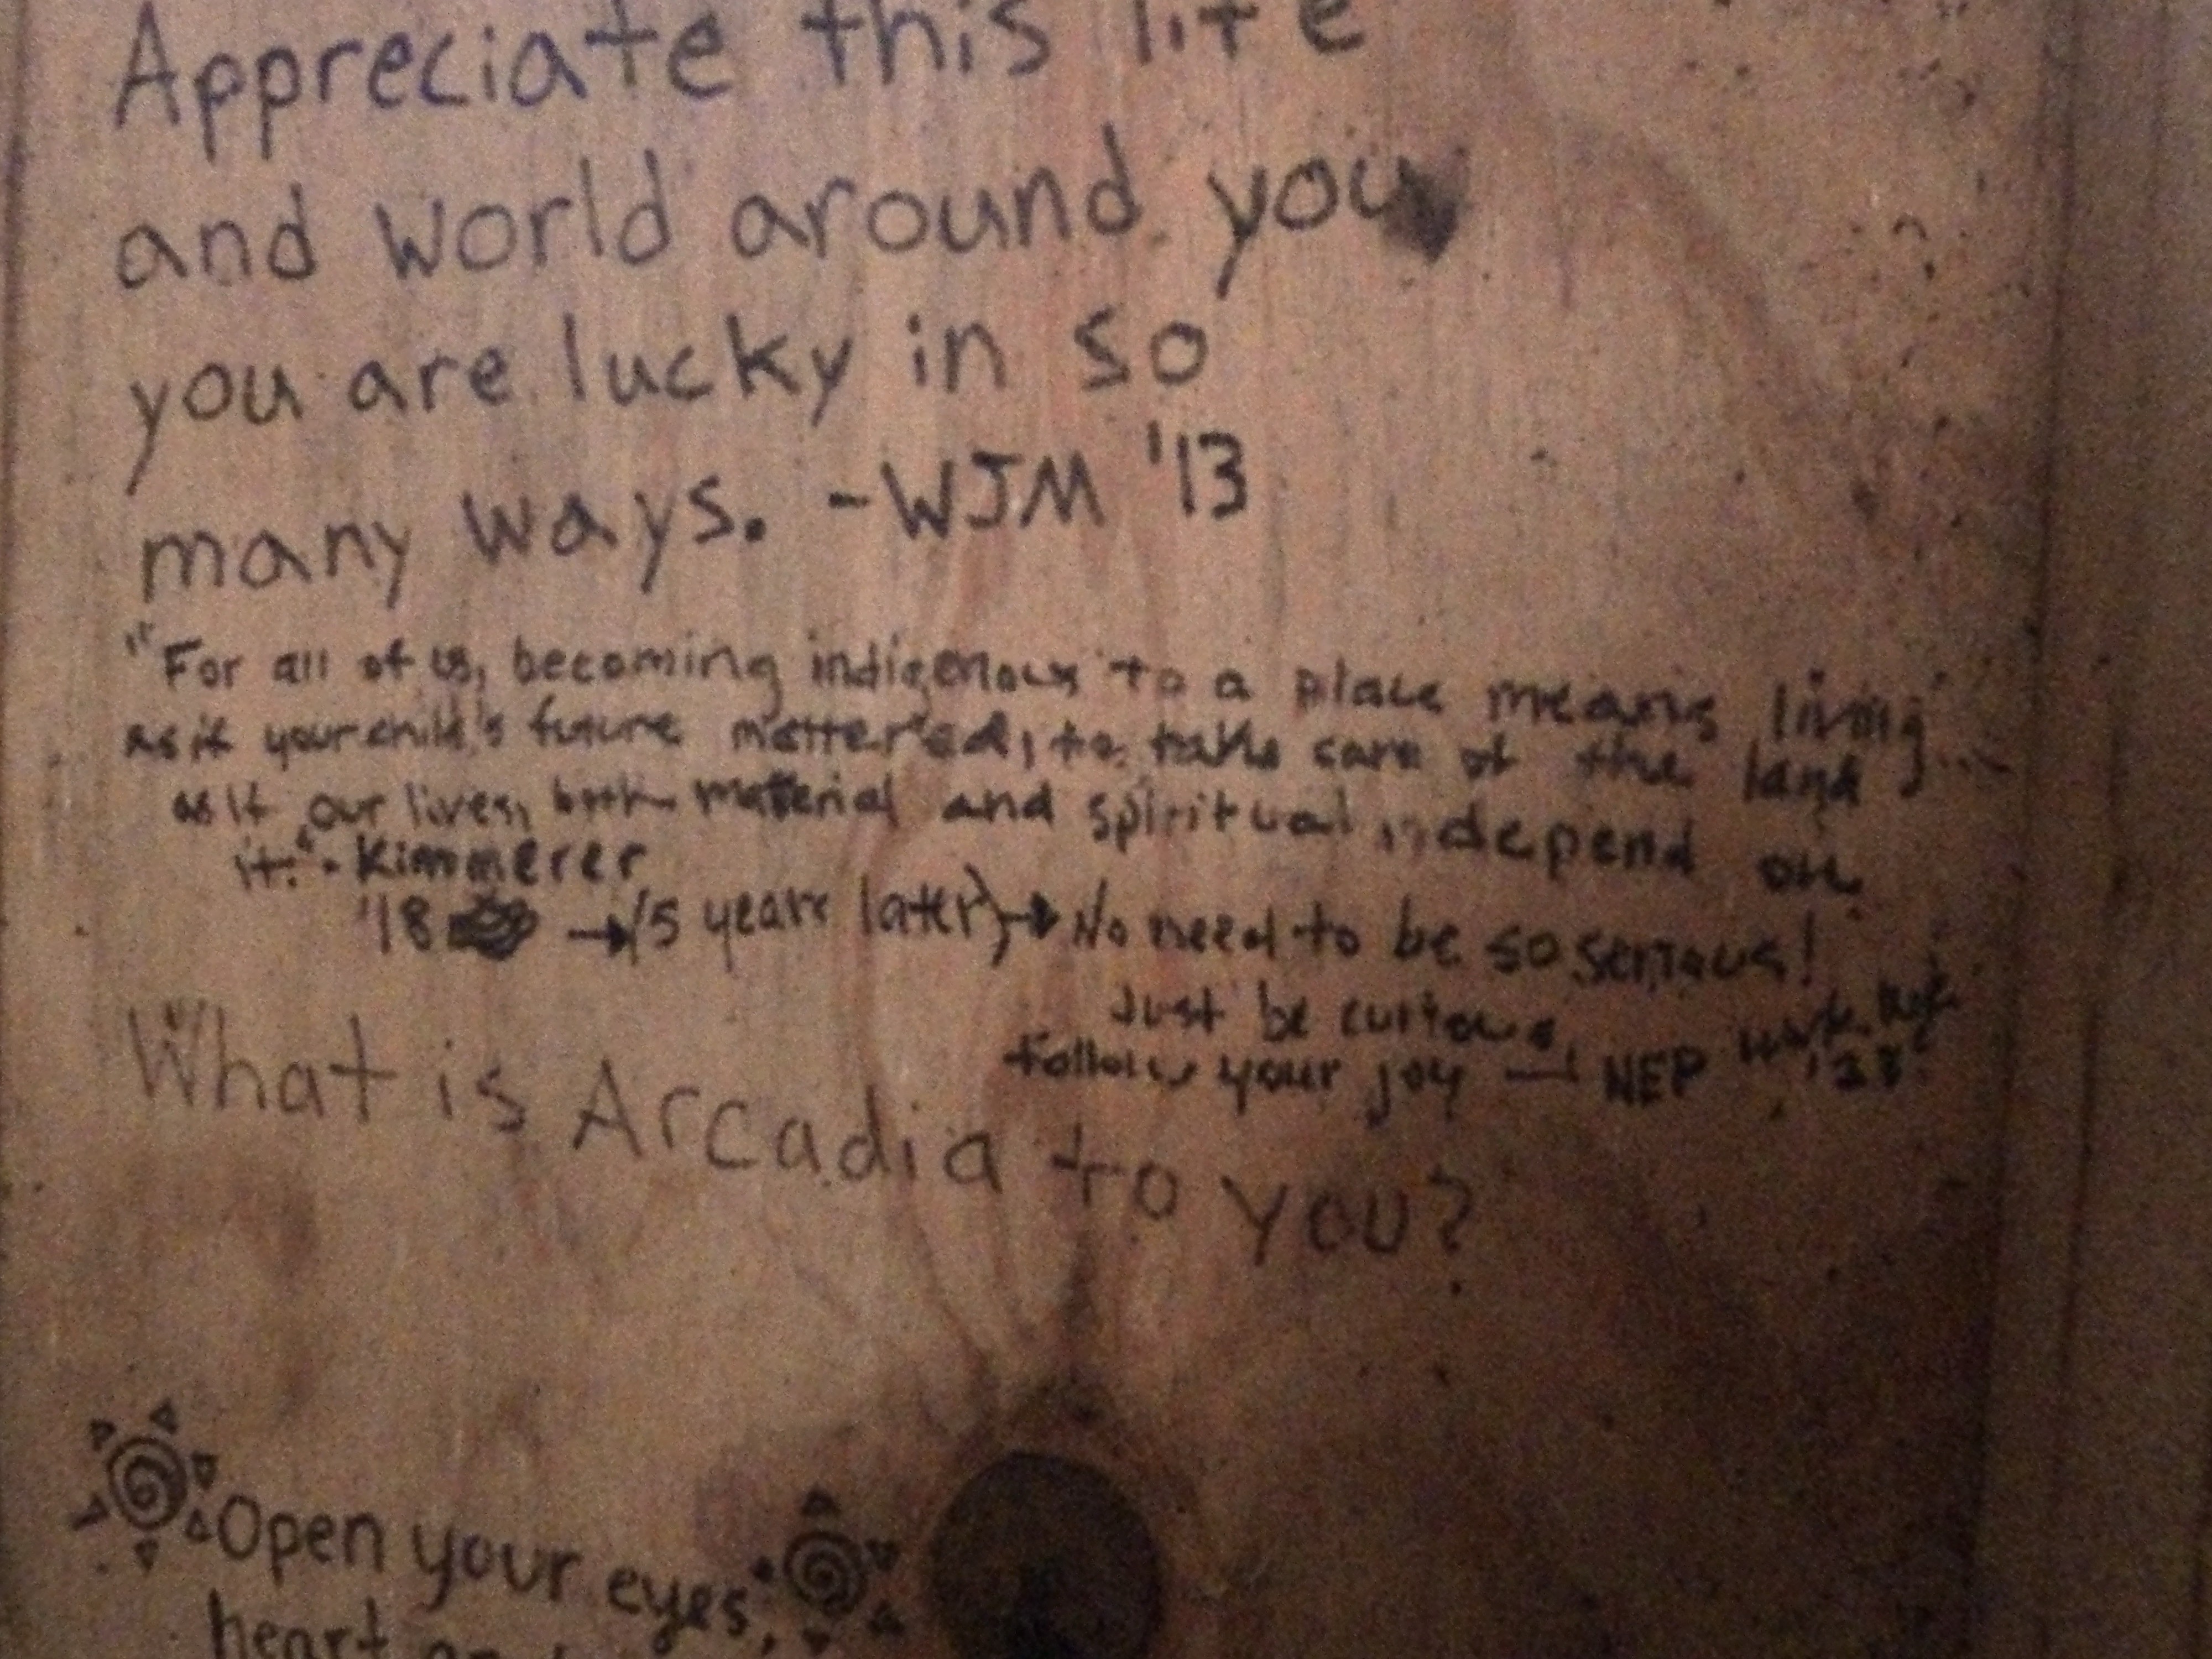 Appreciate this life
and world around you
you are lucky in so
many ways. -WJM '13
"For all of us, becoming indigenous to a place means living
as if your child's future mattered, to take care of the land
as if our lives, both material and spiritual depend on
it." - Kimmerer
'18 → (5 years later) → No need to be so serious!
Just be curious,
follow your joy — NEP
What is Arcadia to you?
Open your eyes,
heart